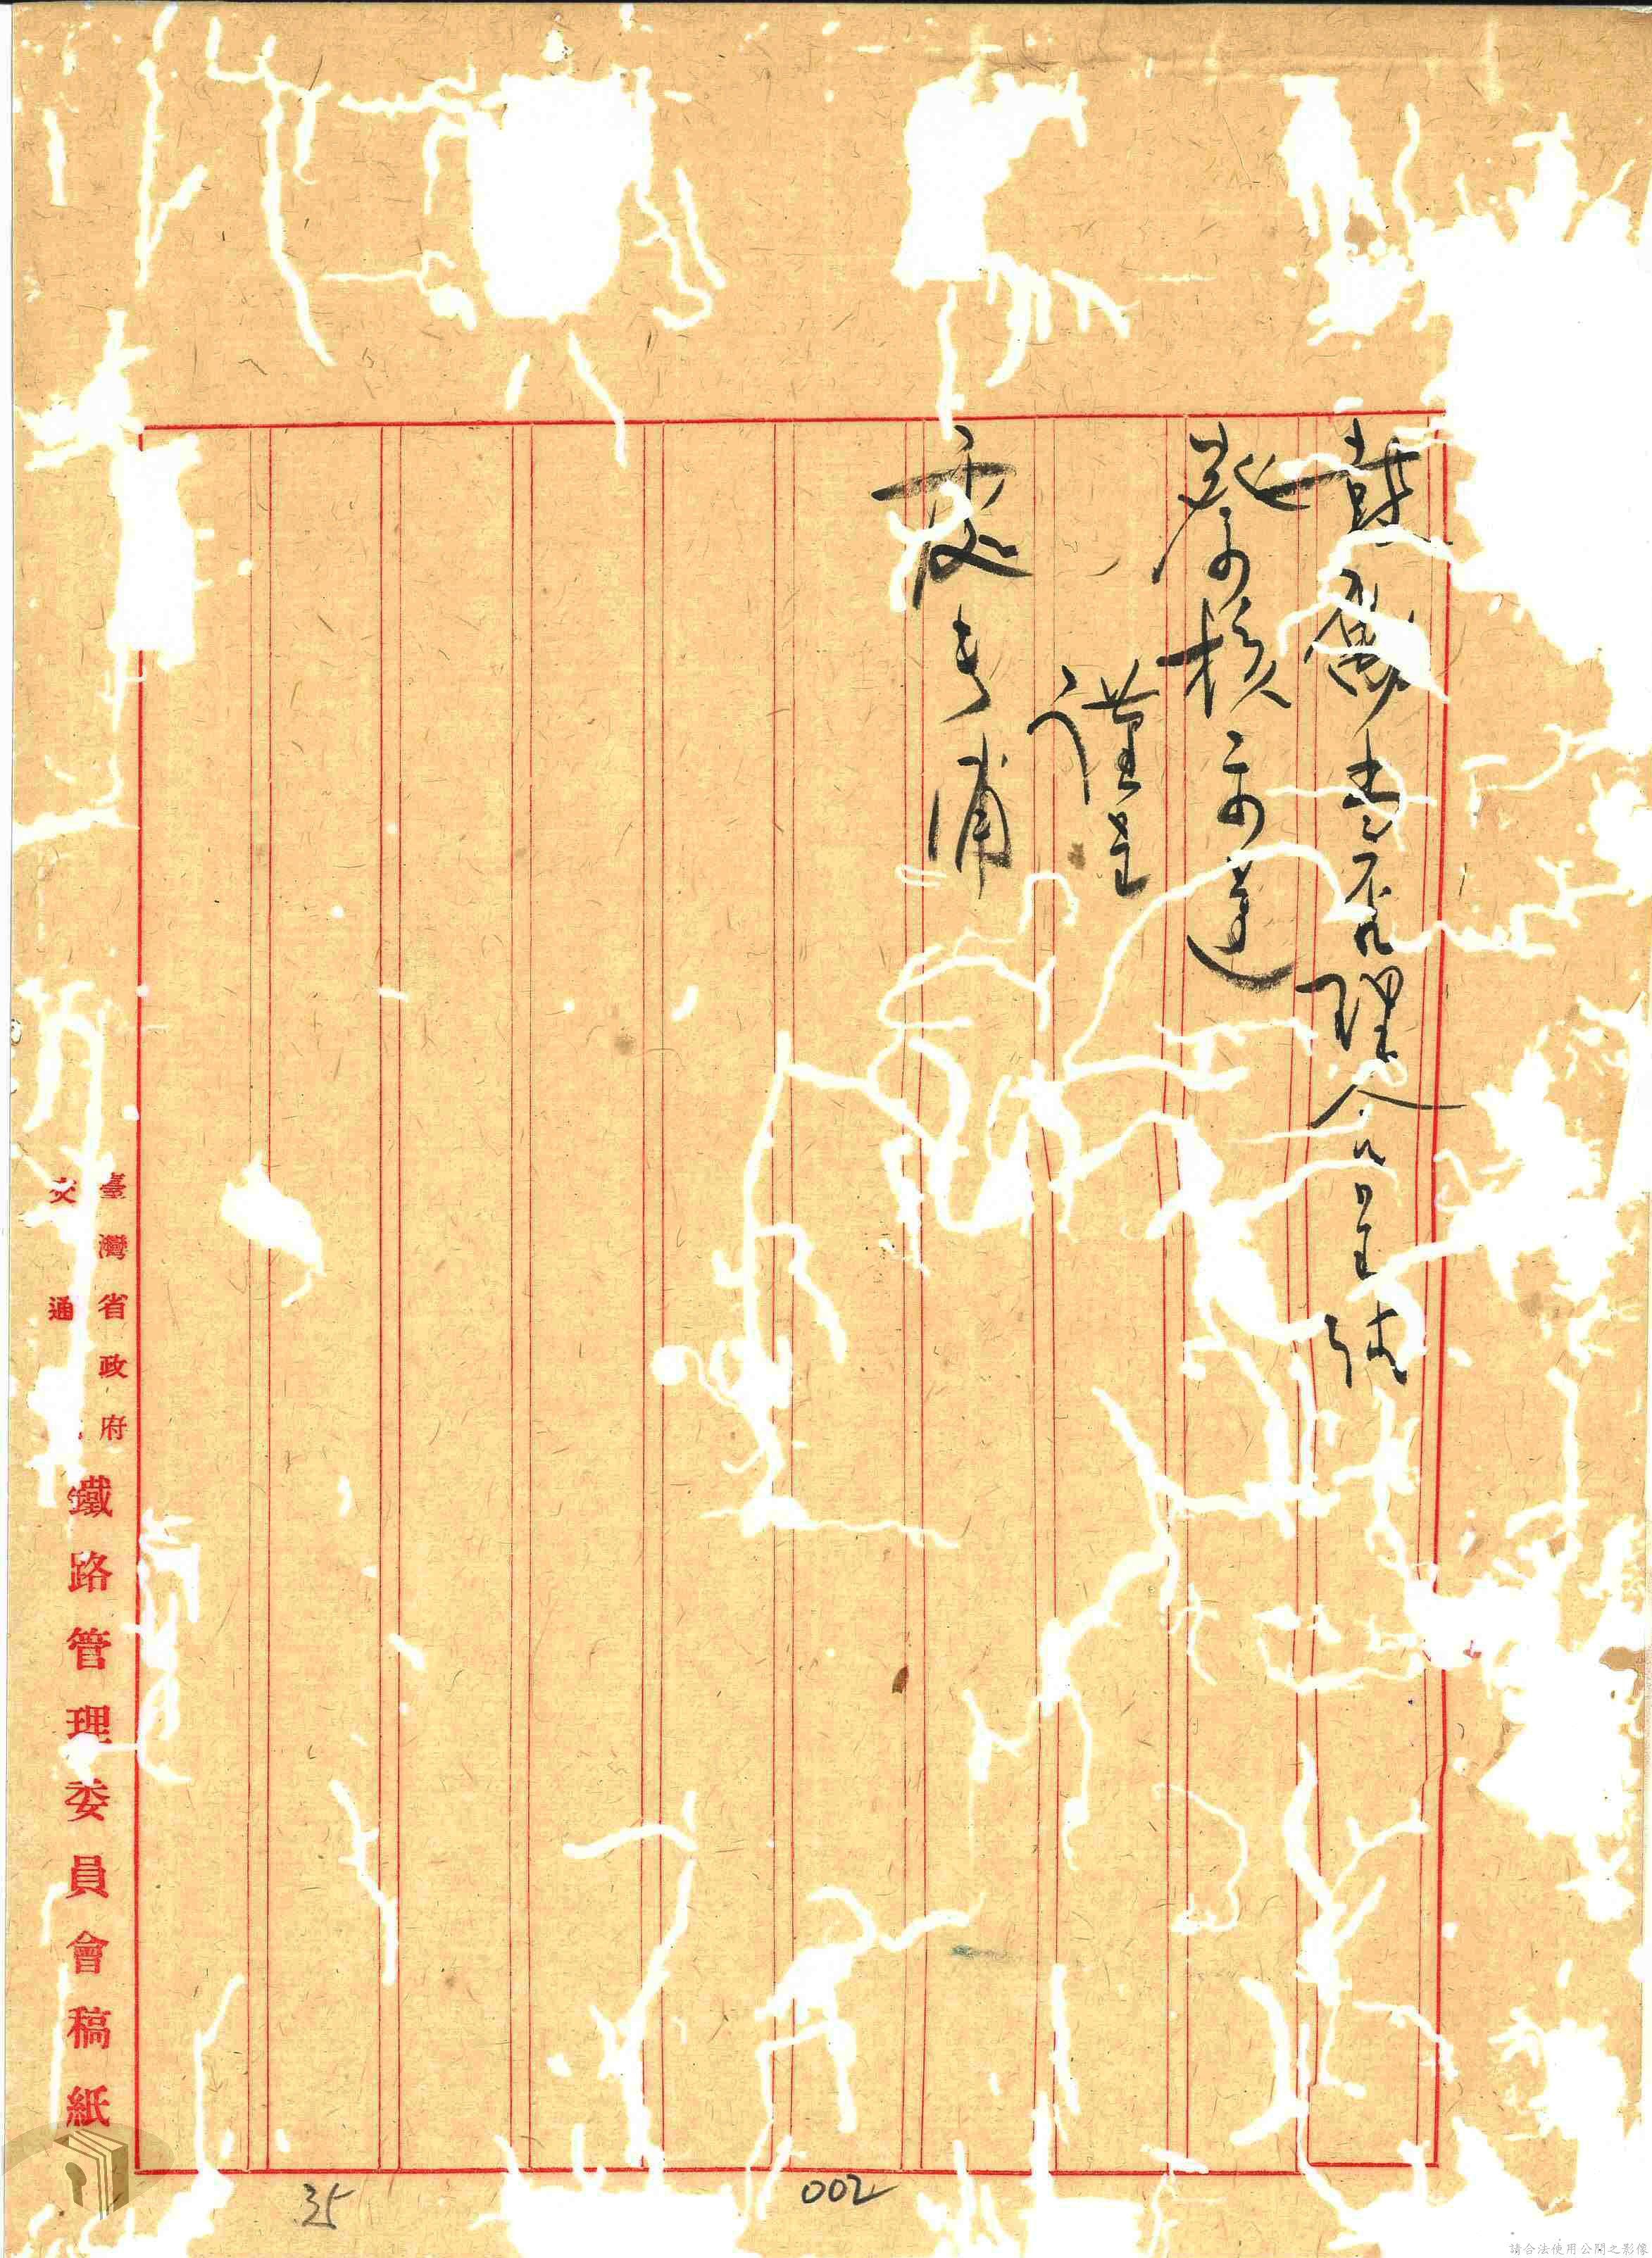 鼓勵
書
否
理合
呈
請
鑒
予核示
遵
謹呈
處長
浦
臺灣省政府
交通
鐵路管理委員會稿紙
35
002
請合法使用公開之影像